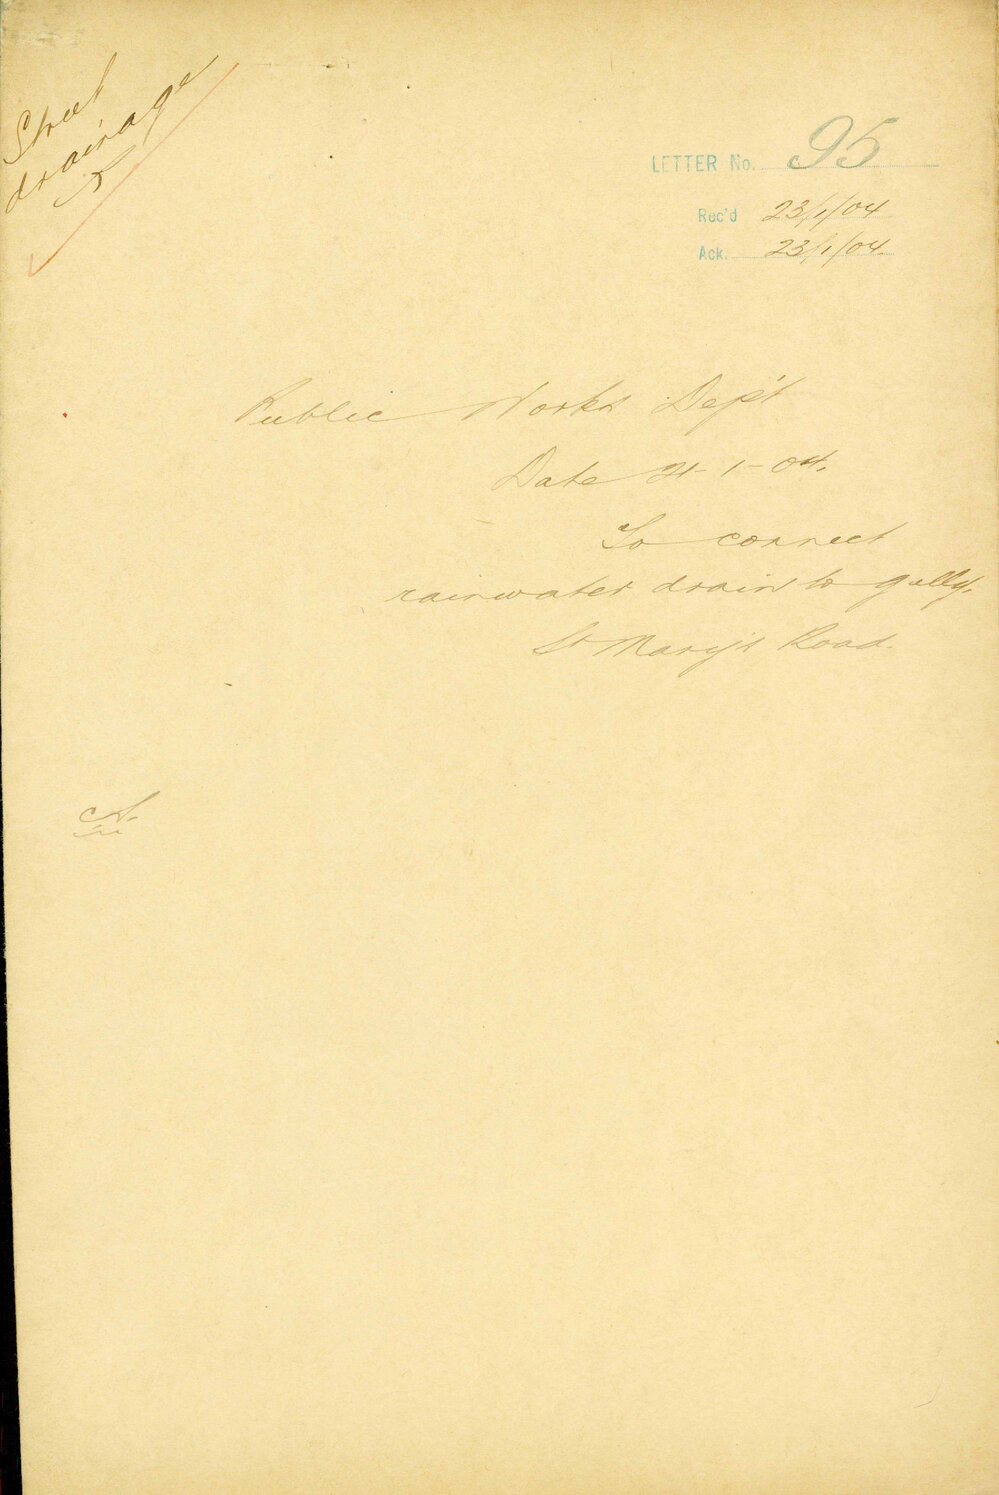 Street
drainage
LETTER No. 95
Rec'd 23/1/04
Ack. 23/1/04
Public Works Dep't
Date 21-1-04.
To connect
rainwater drain to gully.
St Mary's Road.